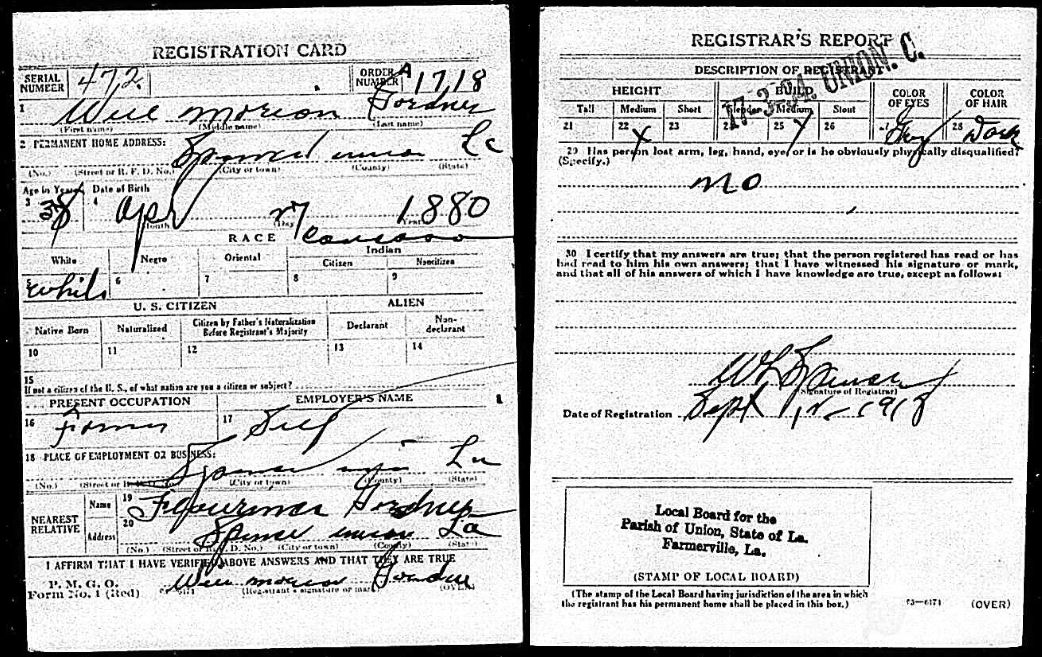 REGISTRATION CARD
SERIAL NUMBER 472 ORDER NUMBER A 1718
1 Will Gordner
(First name) (Middle name) (Last name)
2 PERMANENT HOME ADDRESS: La
(No.) (Street or R. F. D. No.) (City or town) (County) (State)
Age in Years Date of Birth
3 38 4 Apr 27 1880
Month Day Year
RACE
White Negro Oriental Indian
Citizen Noncitizen
5 6 7 8 9
U. S. CITIZEN ALIEN
Native Born Naturalized Citizen by Father's Naturalization Before Registrant's Majority Declarant Non-declarant
10 11 12 13 14
15
If not a citizen of the U. S., of what nation are you a citizen or subject?
PRESENT OCCUPATION EMPLOYER'S NAME
16 17 Self
18 PLACE OF EMPLOYMENT OR BUSINESS:
La
(No.) (Street or R. F. D. No.) (City or town) (County) (State)
NEAREST RELATIVE Name 19 Gordner
Address 20 La
(No.) (Street or R. F. D. No.) (City or town) (County) (State)
I AFFIRM THAT I HAVE VERIFIED ABOVE ANSWERS AND THAT THEY ARE TRUE
P. M. G. O.
Form No. 1 (Red) Will Gordner
(Registrant's signature or mark) (OVER)
REGISTRAR'S REPORT
17-3-34 UNION. C.
DESCRIPTION OF REGISTRANT
HEIGHT BUILD COLOR OF EYES COLOR OF HAIR
Tall Medium Short Slender Medium Stout
21 22 X 23 24 25 26 27 28 Dark
29 Has person lost arm, leg, hand, eye, or is he obviously physically disqualified?
(Specify.)
no
30 I certify that my answers are true; that the person registered has read or has
had read to him his own answers; that I have witnessed his signature or mark,
and that all of his answers of which I have knowledge are true, except as follows:
Signature of Registrar
Date of Registration Sept 12-1918
Local Board for the
Parish of Union, State of La.
Farmerville, La.
(STAMP OF LOCAL BOARD)
(The stamp of the Local Board having jurisdiction of the area in which
the registrant has his permanent home shall be placed in this box.)
03—6171 (OVER)